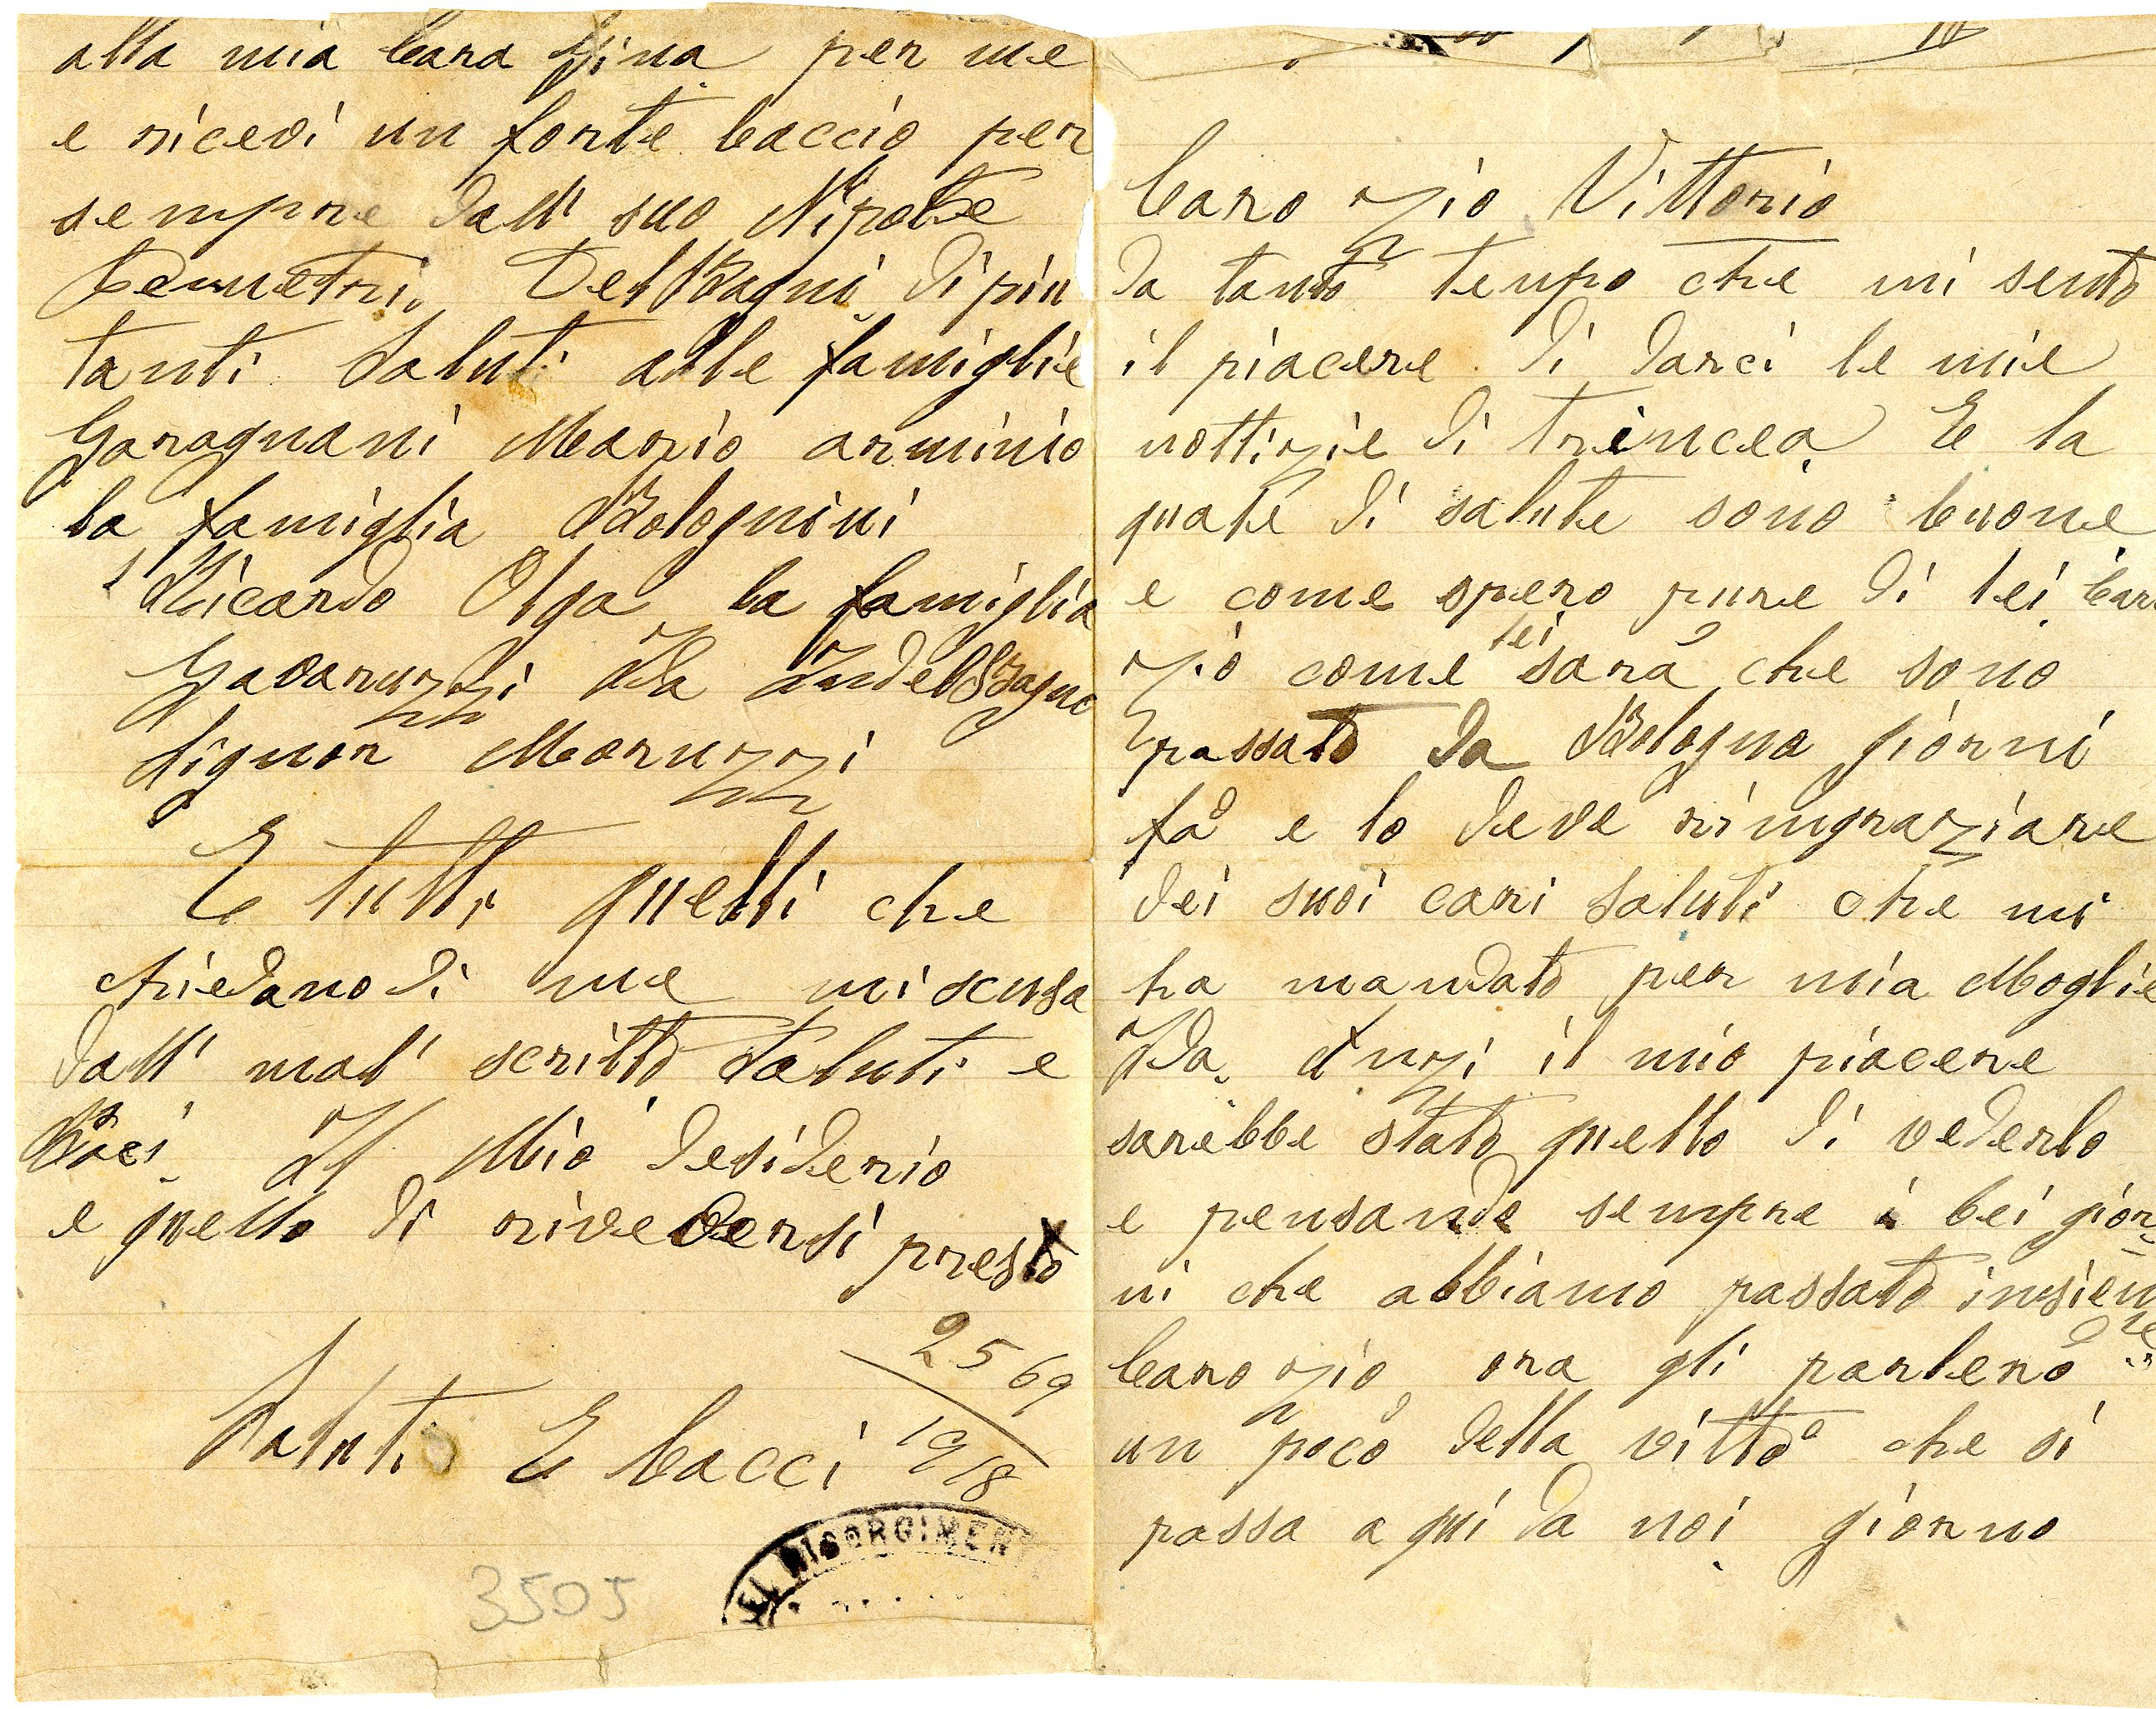 Caro zio Vittorio
da tanto tempo che mi sento
il piacere di darci le mie
nottizie di trincea E la
quale di salute sono buone
e come spero pure di lei Caro
zio come lei sarà che sono
passato da Bologna giorni
fà e lo deve rimgraziare
dei suoi cari saluti che mi
ha mandato per mia Moglie
Ida. Anzi il mio piacere
sarebbe stato quello di vederlo
e pensando sempre i bei gior-
ni che abbiamo passato insieme
Caro zio ora gli parlerò
un poco della vitta che si
passa a qui da noi giorno
alla mia Cara Gina per me
e ricevi un forte baccio per
sempre dall' suo Nipote
Demetrio DelBagni di piu
tanti Saluti alle famiglie
Garagnani Mario arminio
la famiglia Bolognini
Ricardo Olga la famiglia
Gavaruzzi Ida DelBagno
Signor Maruzzi
E tutti quelli che
chiedano di me mi scusa
dall' mal' scritto Saluti e
Baci Il Mio desiderio
e quello di rivedersi presto
25 69
1918
Saluti E bacci
EL RISORGIMEN
3505